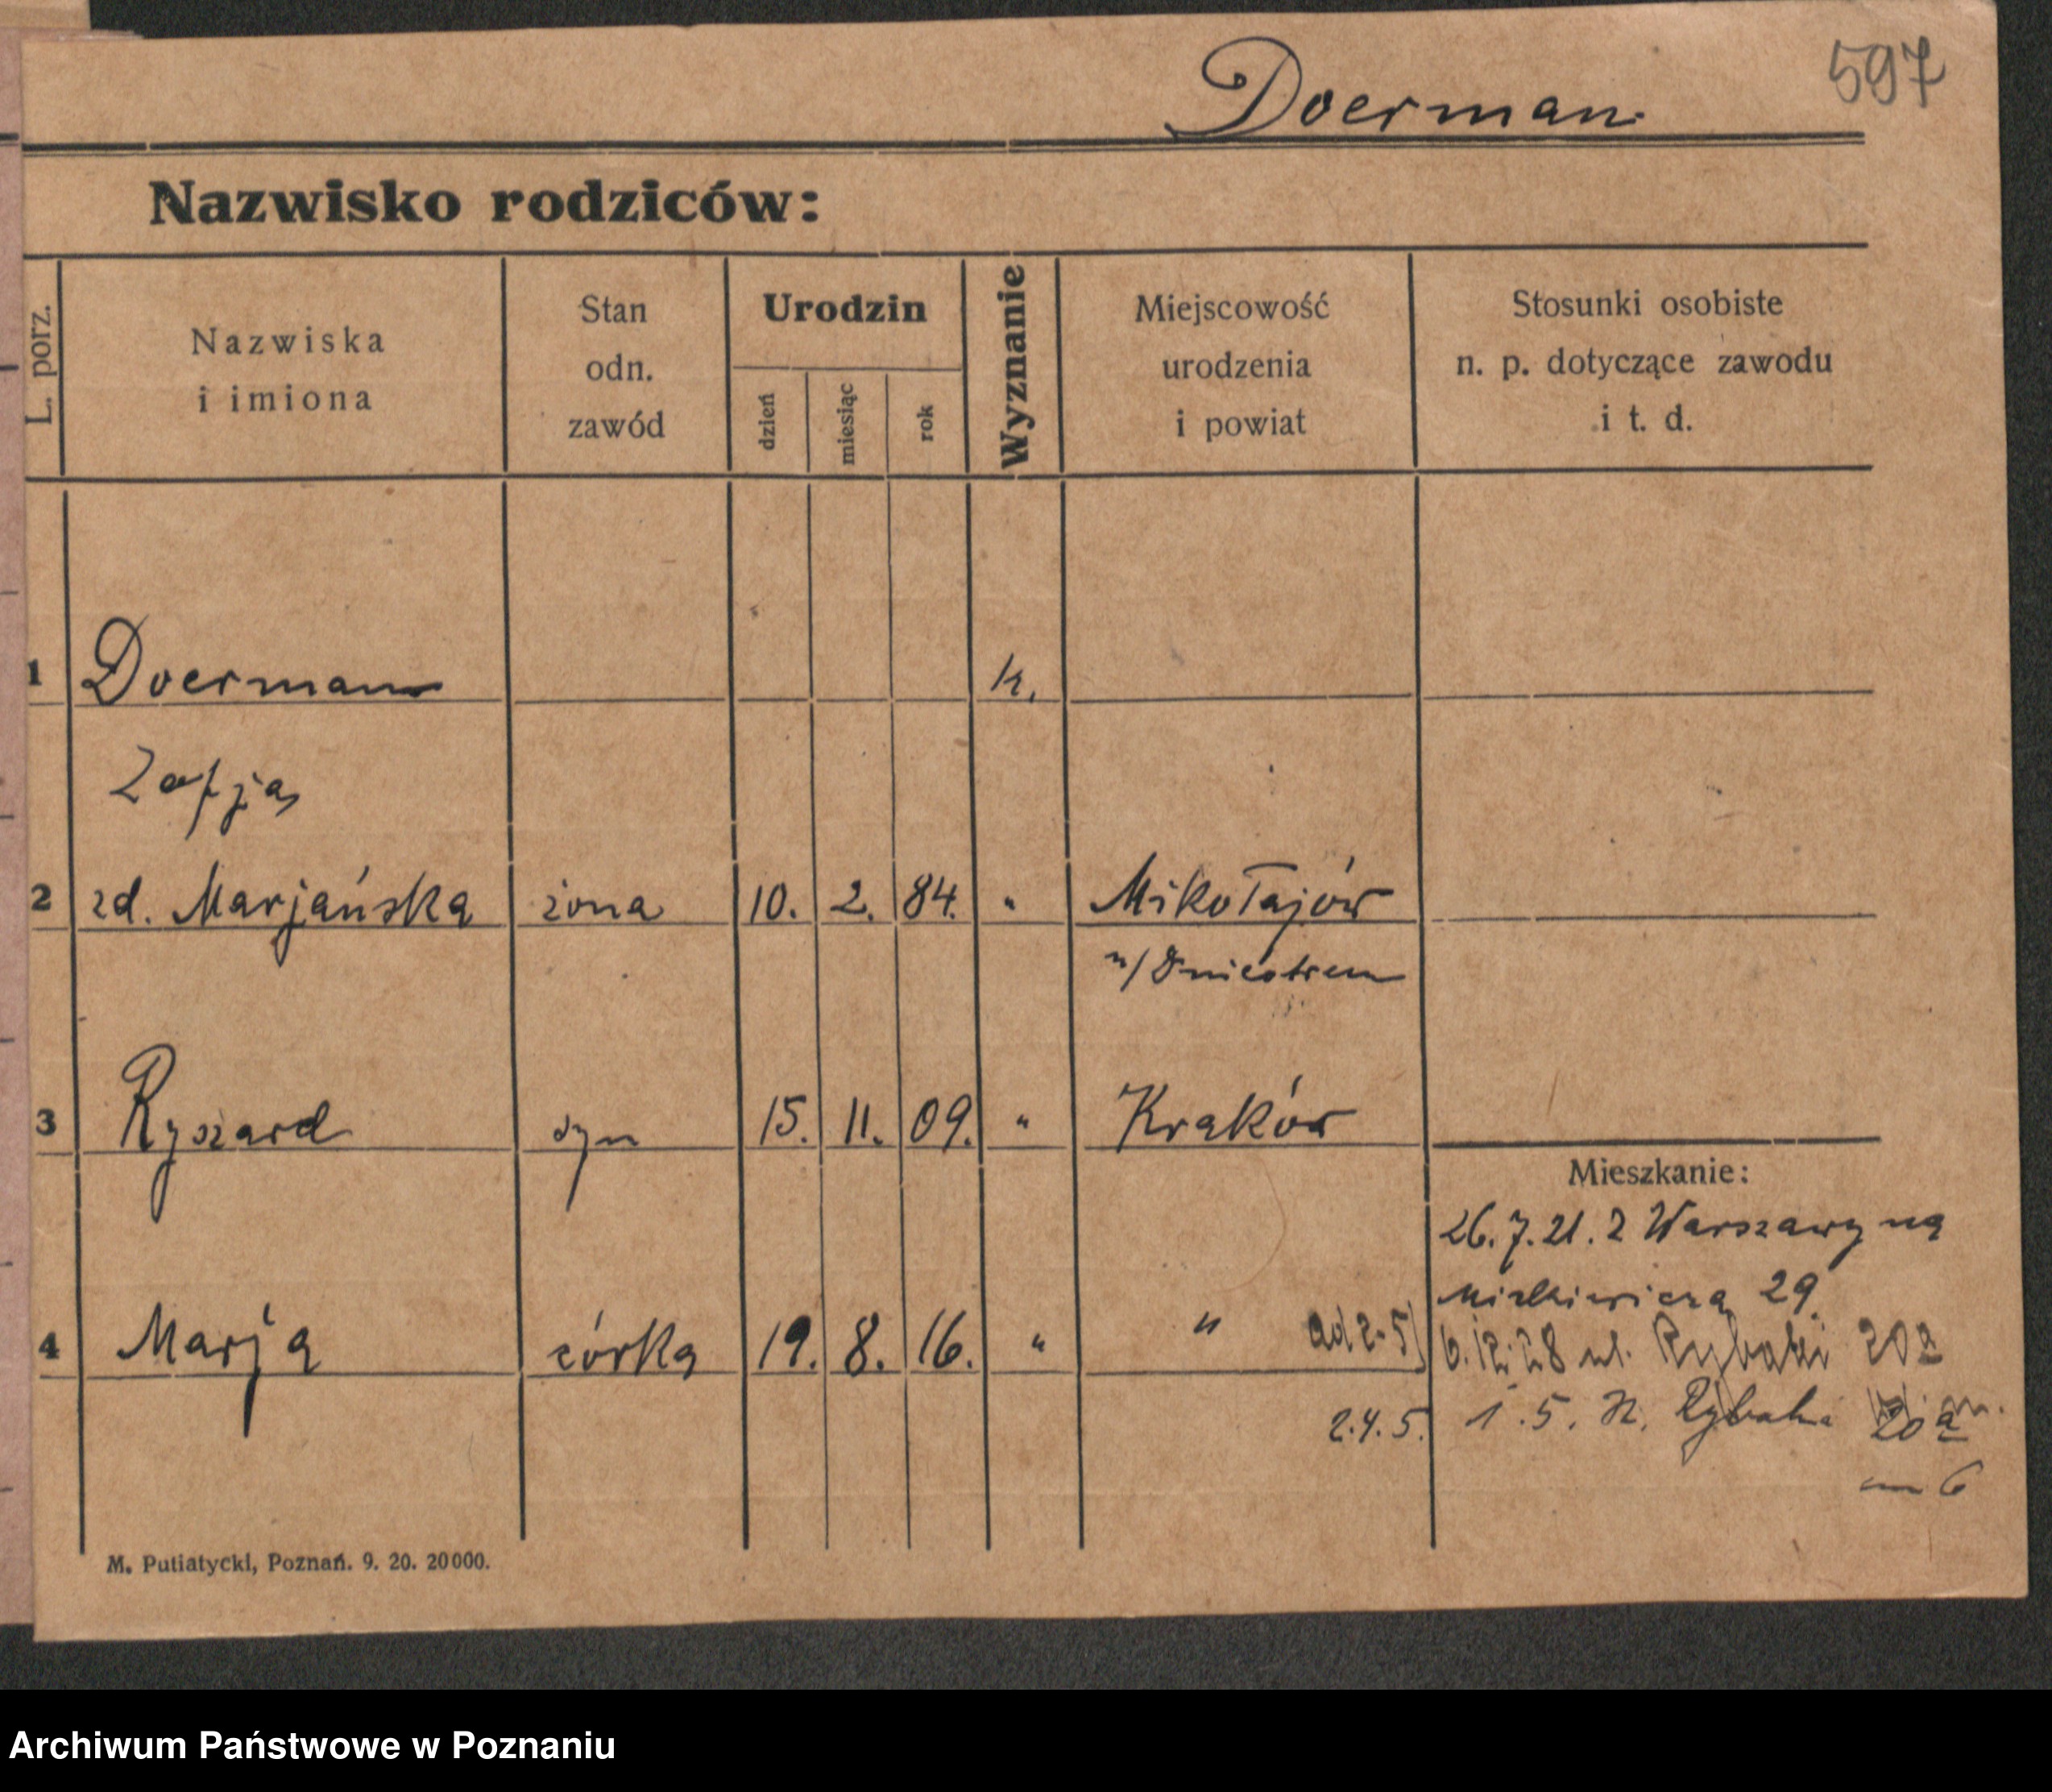 597
Doerman
Nazwisko rodziców:
L. porz.
Nazwiska
i imiona
Stan
odn.
zawód
Urodzin
dzień
miesiąc
rok
Wyznanie
Miejscowość
urodzenia
i powiat
Stosunki osobiste
n. p. dotyczące zawodu
i t. d.
1 Doerman k.
Zofja
2 zd. Marjańska żona 10. 2. 84. " Mikołajów
n/Dniestrem
3 Ryszard syn 15. 11. 09. " Kraków
Mieszkanie:
26.7.21. z Warszawy na
Mickiewicza 29
4 Marja córka 19. 8. 16. " "
ad 2-5) 6.12.28 ul. Rybaki 20a
2.4.5. 1.5. Rybaki 20a
m 6
M. Putiatycki, Poznań. 9. 20. 20000.
Archiwum Państwowe w Poznaniu